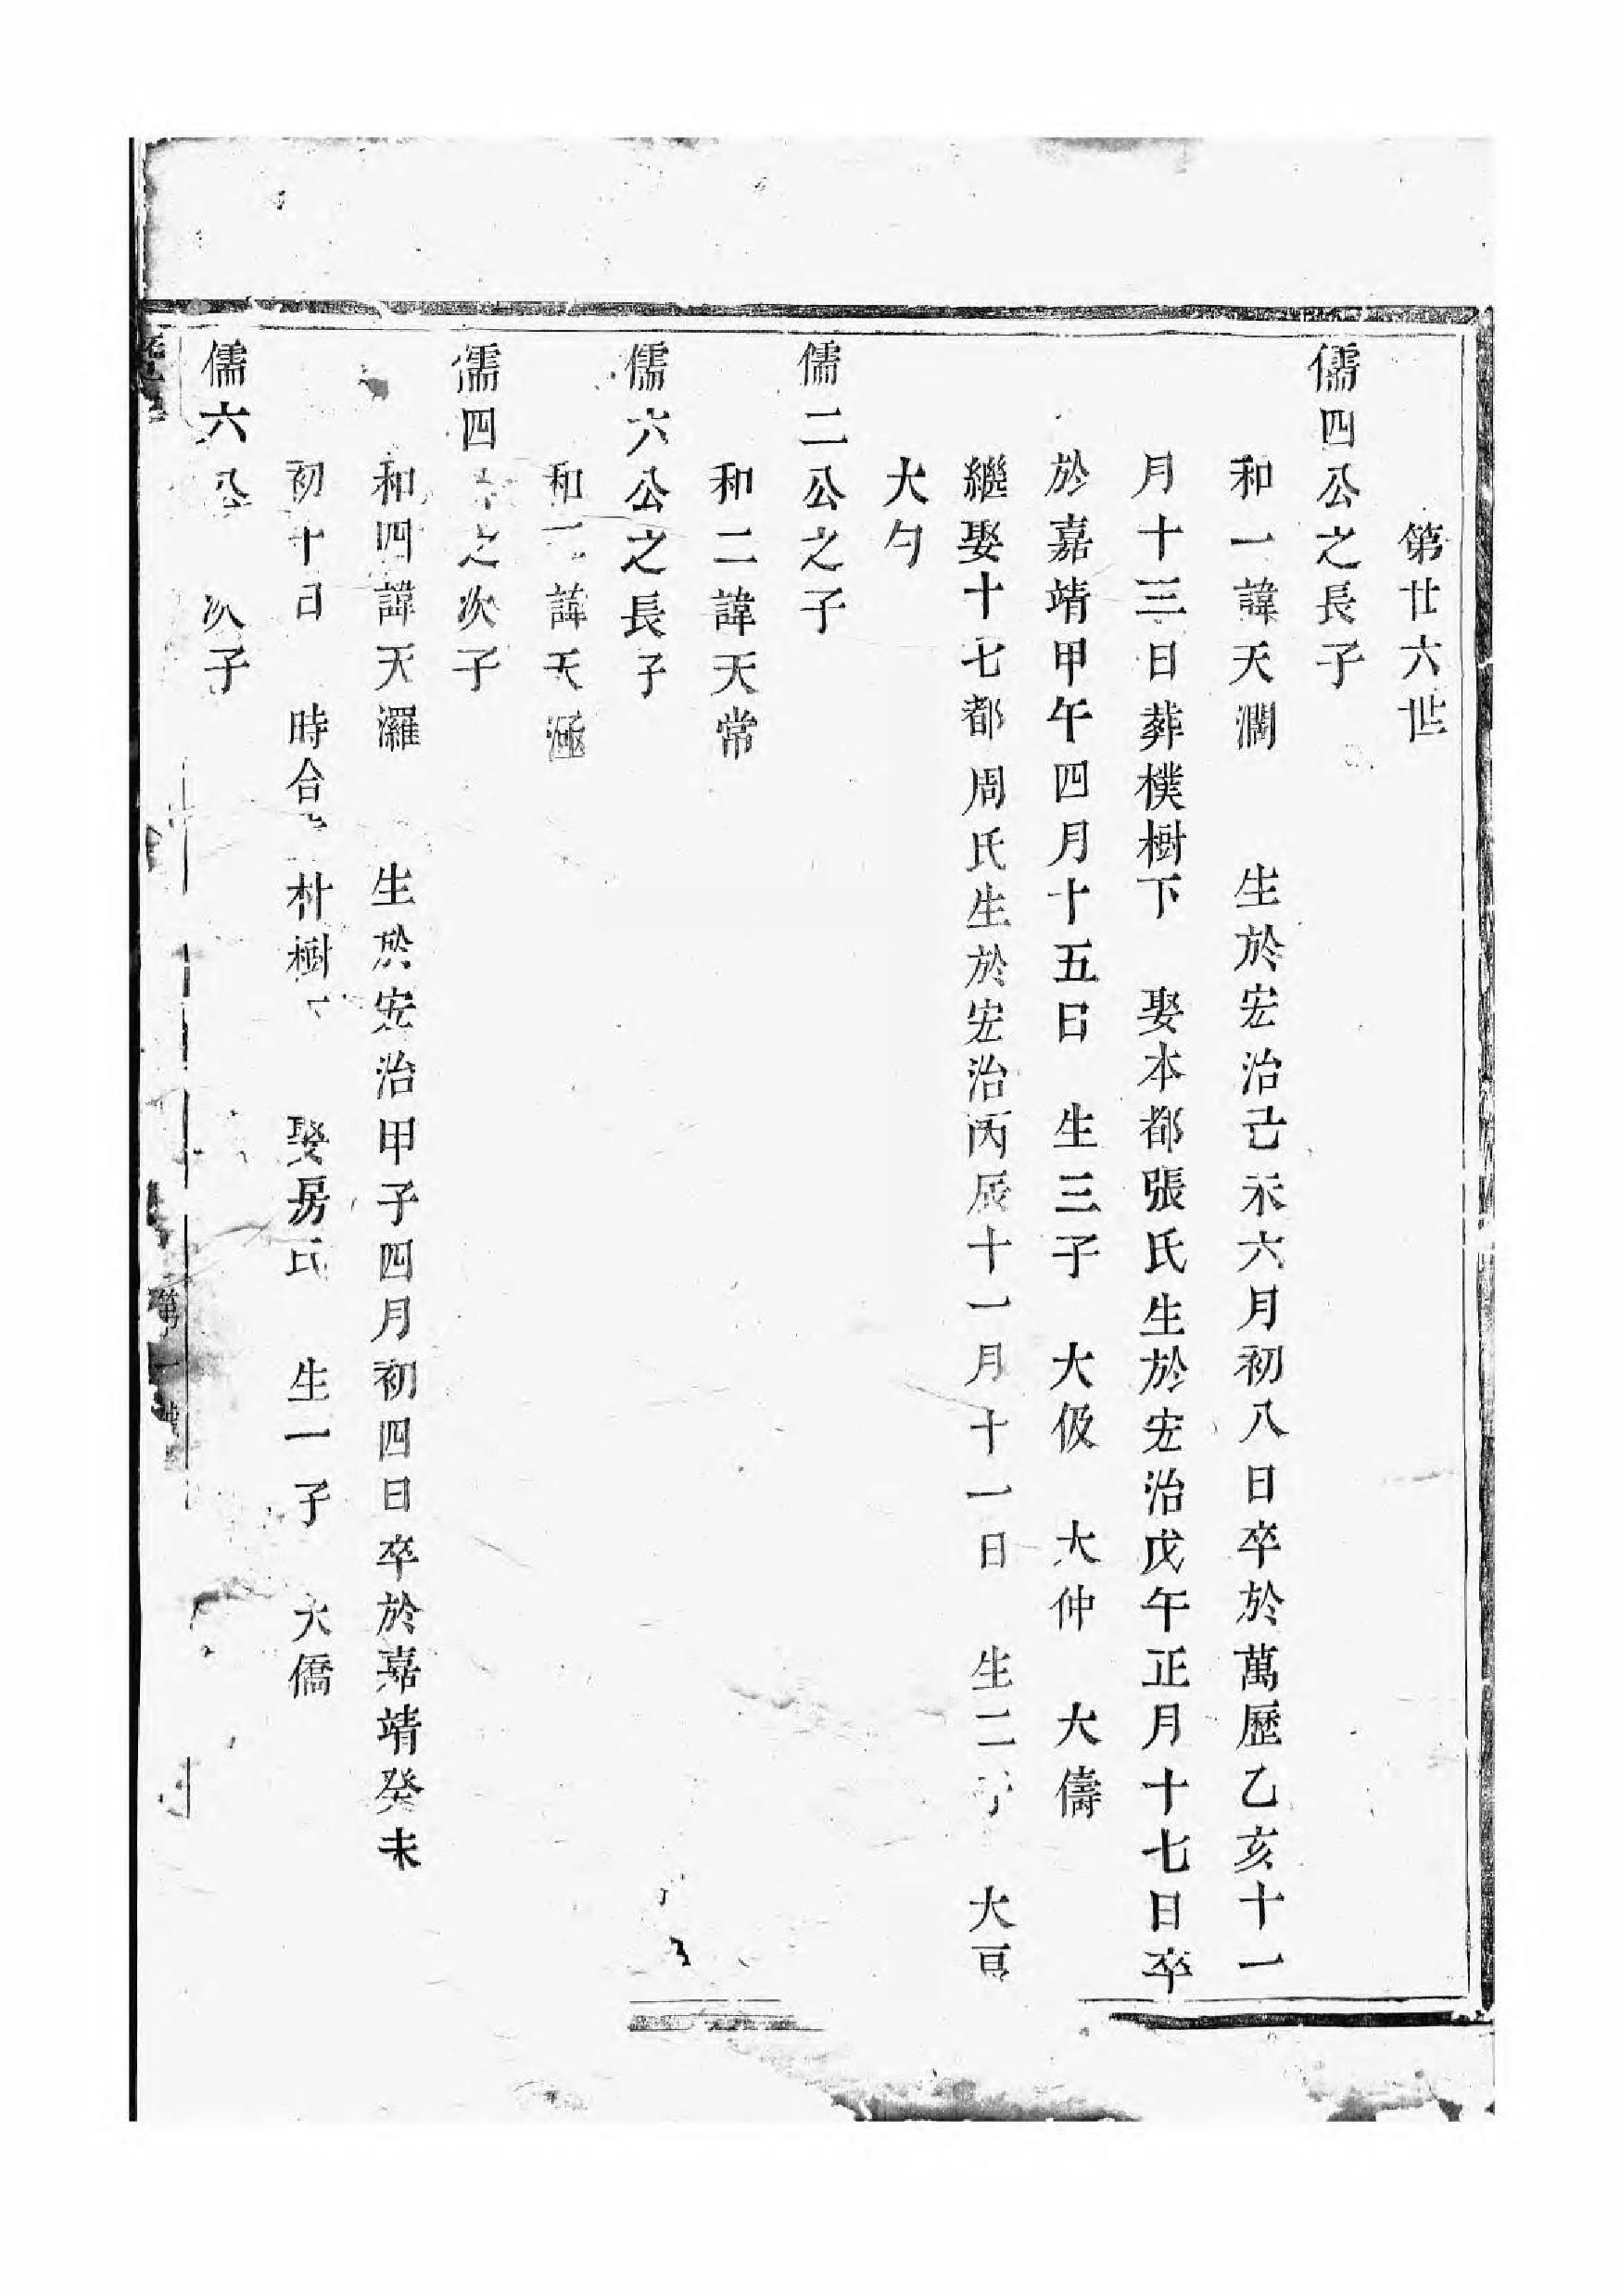 第廿六世
儒四公之長子
和一諱天澗 生於宏治己未六月初八日卒於萬歷乙亥十一
月十三日葬樸樹下 娶本都張氏生於宏治戊午正月十七日卒
於嘉靖甲午四月十五日 生三子 大伋 大仲 大儔
繼娶十七都周氏生於宏治丙辰十一月十一日 生二子 大
大勻
儒二公之子
和二諱天常
儒六公之長子
和 諱天
儒四 之次子
和四諱天灑 生於宏治甲子四月初四日卒於嘉靖癸未
初十日 時合 朴樹 娶房氏 生一子 大僑
儒六公 次子
第一